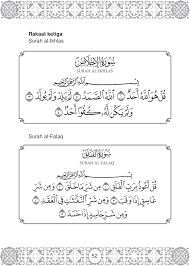 Rakaat ketiga
Surah al-Ikhlas
سُورَةُ الإِخْلَاصِ
SURAH AL-IKHLAS
بِسْمِ اللَّهِ الرَّحْمَٰنِ الرَّحِيمِ
قُلْ هُوَ اللَّهُ أَحَدٌ ۝ اللَّهُ الصَّمَدُ ۝ لَمْ يَلِدْ وَلَمْ يُولَدْ ۝
وَلَمْ يَكُن لَّهُ كُفُوًا أَحَدٌ ۝
Surah al-Falaq
سُورَةُ الفَلَقِ
SURAH AL-FALAQ
بِسْمِ اللَّهِ الرَّحْمَٰنِ الرَّحِيمِ
قُلْ أَعُوذُ بِرَبِّ الْفَلَقِ ۝ مِن شَرِّ مَا خَلَقَ ۝ وَمِن شَرِّ
غَاسِقٍ إِذَا وَقَبَ ۝ وَمِن شَرِّ النَّفَّاثَاتِ فِي الْعُقَدِ ۝
وَمِن شَرِّ حَاسِدٍ إِذَا حَسَدَ ۝
52